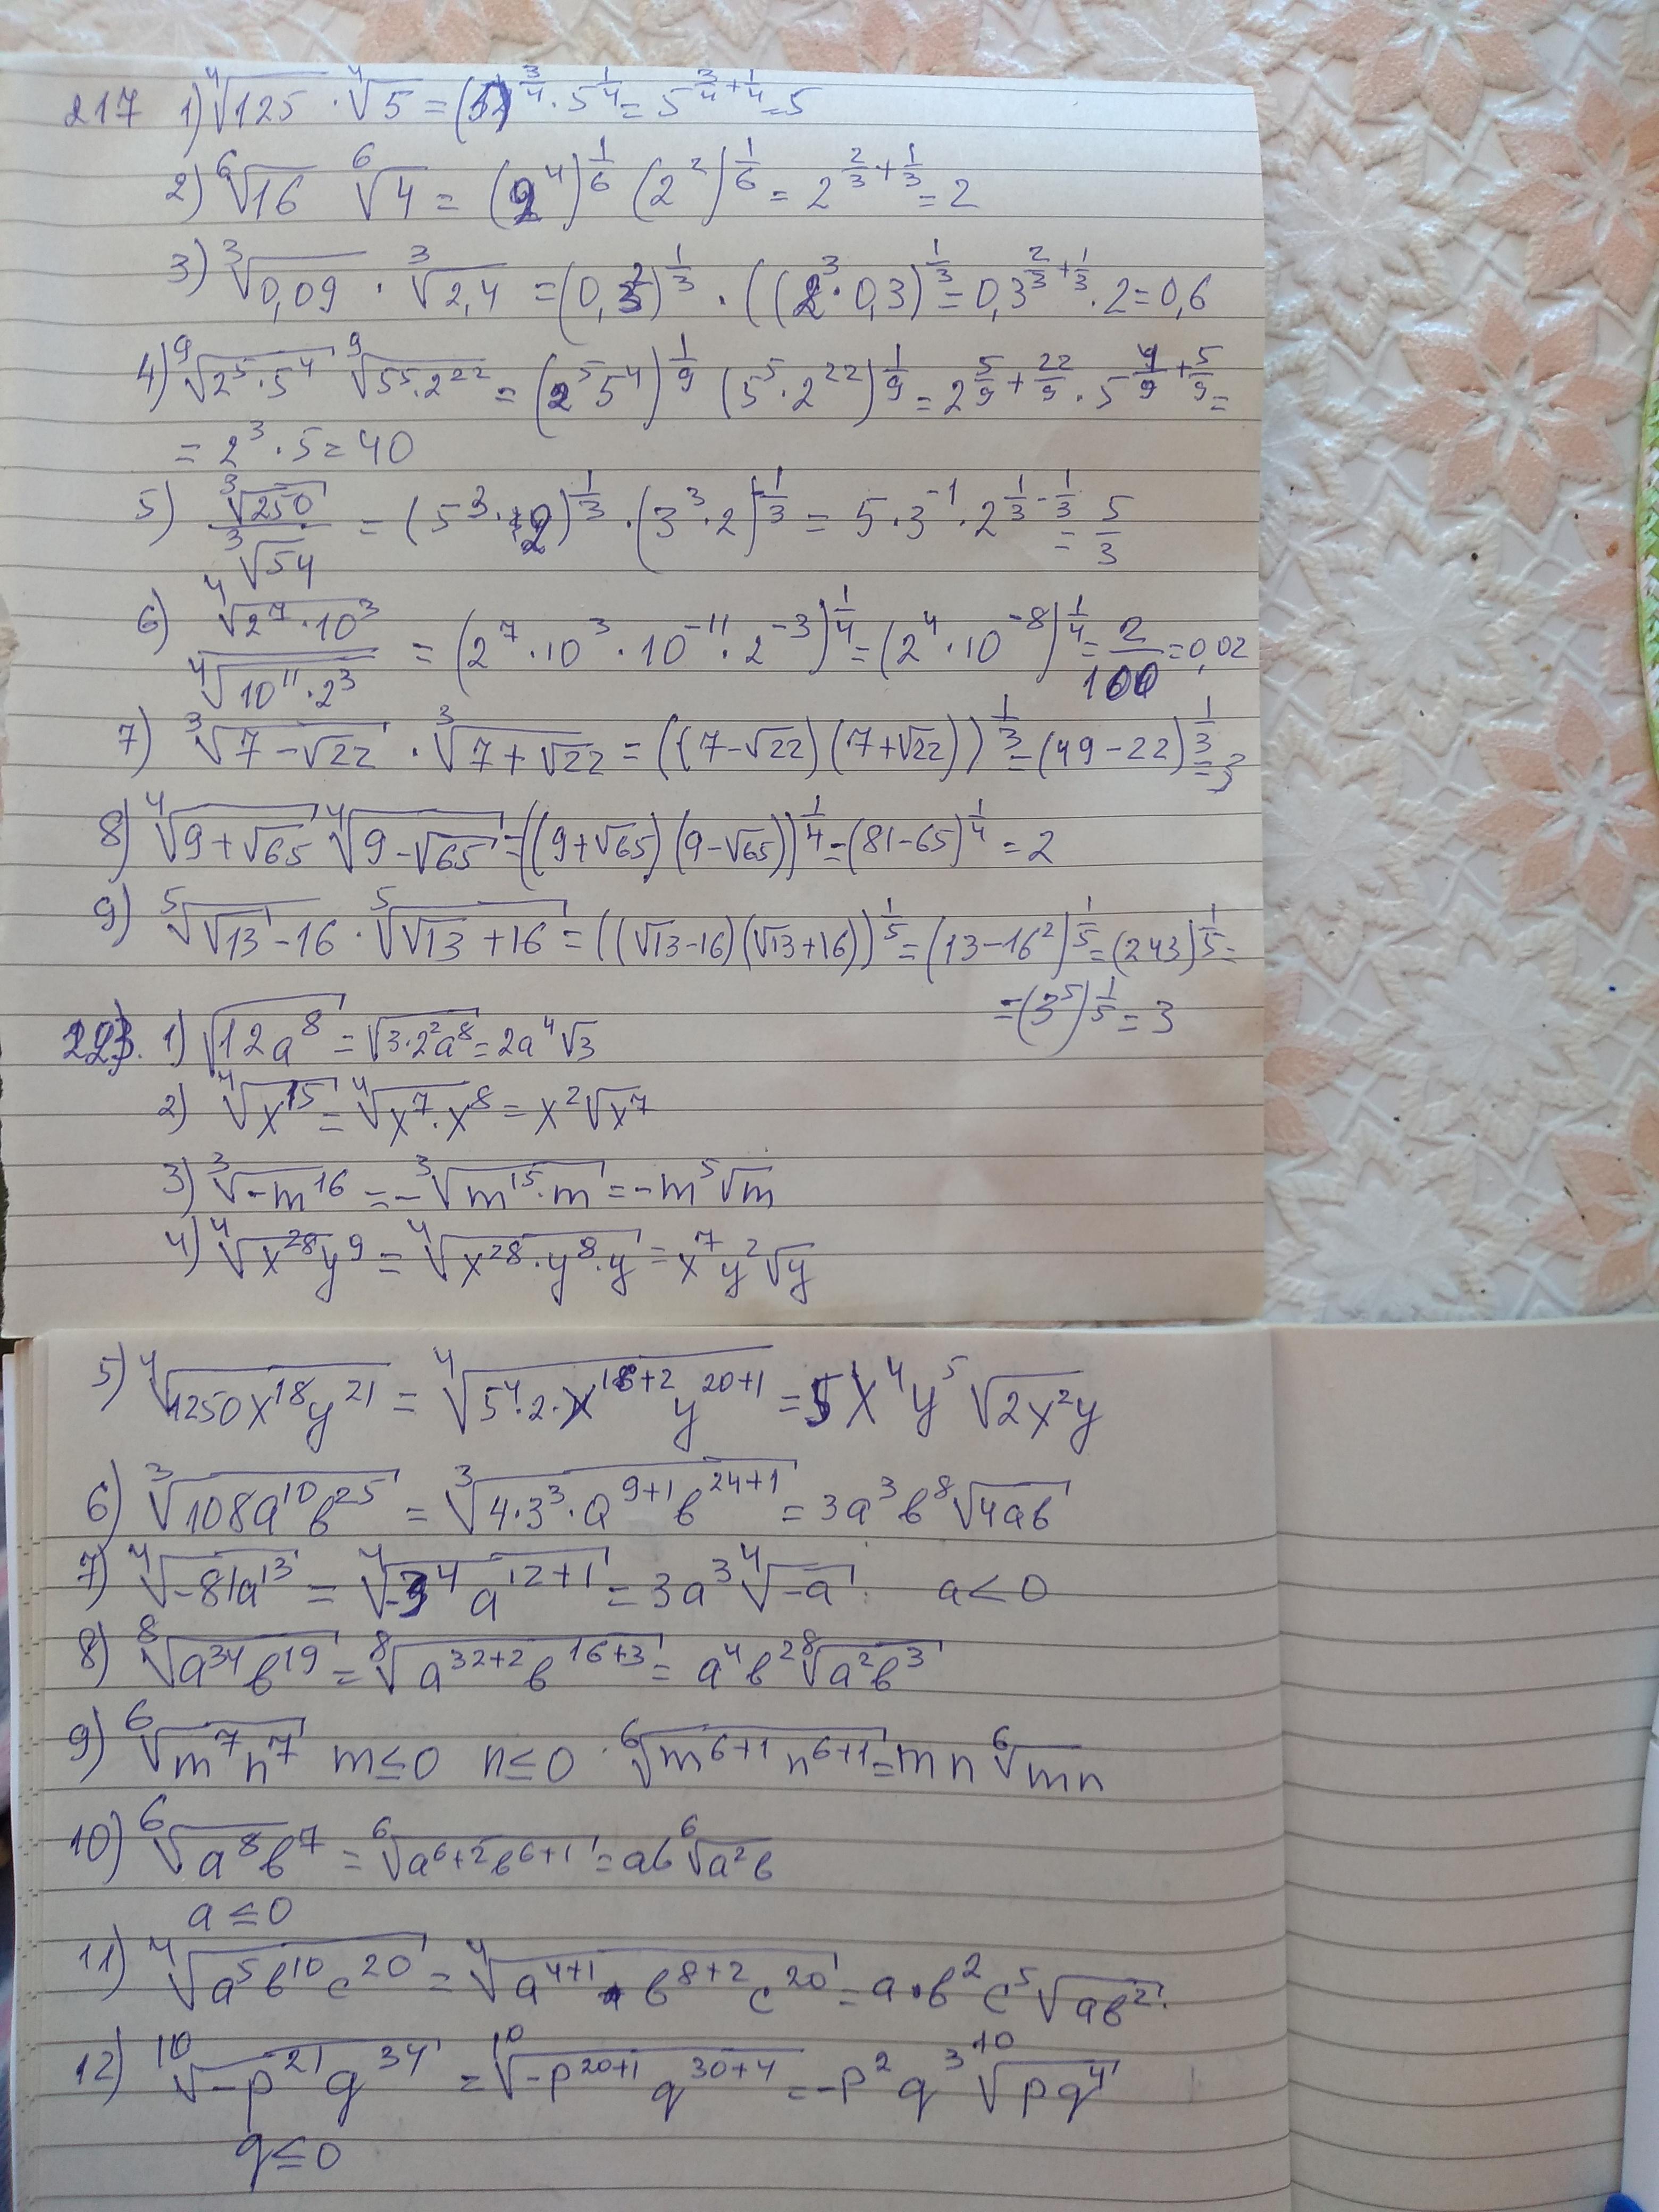 217 1) ⁴√125 · ⁴√5 = (5)^{3/4} · 5^{1/4} = 5^{3/4+1/4} = 5
2) ⁶√16 ⁶√4 = (2⁴)^{1/6} (2²)^{1/6} = 2^{2/3+1/3} = 2
3) ³√0,09 · ³√2,4 = (0,3²)^{1/3} · ((2³·0,3)^{1/3} = 0,3^{2/3+1/3} · 2 = 0,6
4) ⁹√2⁵·5⁴ ⁹√5⁵·2²² = (2⁵5⁴)^{1/9} (5⁵·2²²)^{1/9} = 2^{5/9+22/9} · 5^{4/9+5/9} =
= 2³ · 5 = 40
5) ³√250 / ³√54 = (5³·2)^{1/3} · (3³·2)^{-1/3} = 5·3⁻¹·2^{1/3-1/3} = 5/3
6) ⁴√2⁷·10³ / ⁴√10¹¹·2³ = (2⁷·10³·10⁻¹¹·2⁻³)^{1/4} = (2⁴·10⁻⁸)^{1/4} = 2/100 = 0,02
7) ³√7-√22 · ³√7+√22 = ((7-√22)(7+√22))^{1/3} = (49-22)^{1/3} = 3
8) ⁴√9+√65 ⁴√9-√65 = ((9+√65)(9-√65))^{1/4} = (81-65)^{1/4} = 2
9) ⁵√√13-16 · ⁵√√13+16 = ((√13-16)(√13+16))^{1/5} = (13-16²)^{1/5} = (243)^{1/5} =
= (3⁵)^{1/5} = 3
223. 1) √12a⁸ = √3·2²a⁸ = 2a⁴√3
2) ⁴√x¹⁵ = ⁴√x⁷·x⁸ = x²√x⁷
3) ³√-m¹⁶ = -³√m¹⁵·m = -m⁵√m
4) ⁴√x²⁸y⁹ = ⁴√x²⁸·y⁸·y = x⁷y²√y
5) ⁴√1250x¹⁸y²¹ = ⁴√5⁴·2·x^{16+2}y^{20+1} = 5x⁴y⁵√2x²y
6) ³√108a¹⁰b²⁵ = ³√4·3³·a^{9+1}b^{24+1} = 3a³b⁸√4ab
7) ⁴√-81a¹³ = ⁴√-3⁴a^{12+1} = 3a³ ⁴√-a a<0
8) ⁸√a³⁴b¹⁹ = ⁸√a^{32+2}b^{16+3} = a⁴b² ⁸√a²b³
9) ⁶√m⁷n⁷ m≤0 n≤0 · ⁶√m^{6+1}n^{6+1} = mn ⁶√mn
10) ⁶√a⁸b⁷ = ⁶√a^{6+2}b^{6+1} = ab ⁶√a²b
a≤0
11) ⁴√a⁵b¹⁰c²⁰ = ⁴√a^{4+1}·b^{8+2}c²⁰ = a·b²c⁵√ab²
12) ¹⁰√-p²¹q³⁴ = ¹⁰√-p^{20+1}q^{30+4} = -p²q³ ¹⁰√pq⁴
q≤0